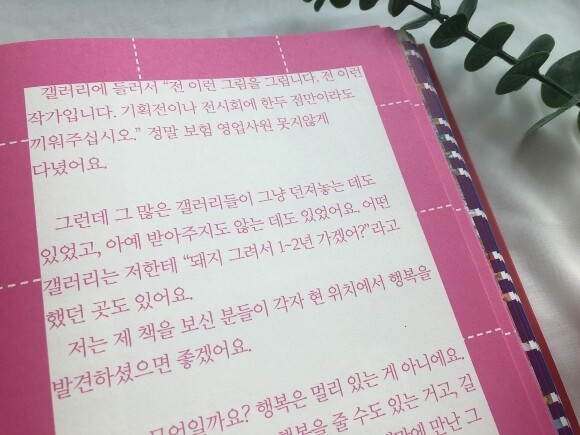 갤러리에 들러서 “전 이런 그림을 그립니다. 전 이런
작가입니다. 기획전이나 전시회에 한두 점만이라도
끼워주십시오.” 정말 보험 영업사원 못지않게
다녔어요.
그런데 그 많은 갤러리들이 그냥 던져놓는 데도
있었고, 아예 받아주지도 않는 데도 있었어요. 어떤
갤러리는 저한테 “돼지 그려서 1~2년 가겠어?”라고
했던 곳도 있어요.
저는 제 책을 보신 분들이 각자 현 위치에서 행복을
발견하셨으면 좋겠어요.
무엇일까요? 행복은 멀리 있는 게 아니에요.
행복을 줄 수도 있는 거고, 길
만난 그